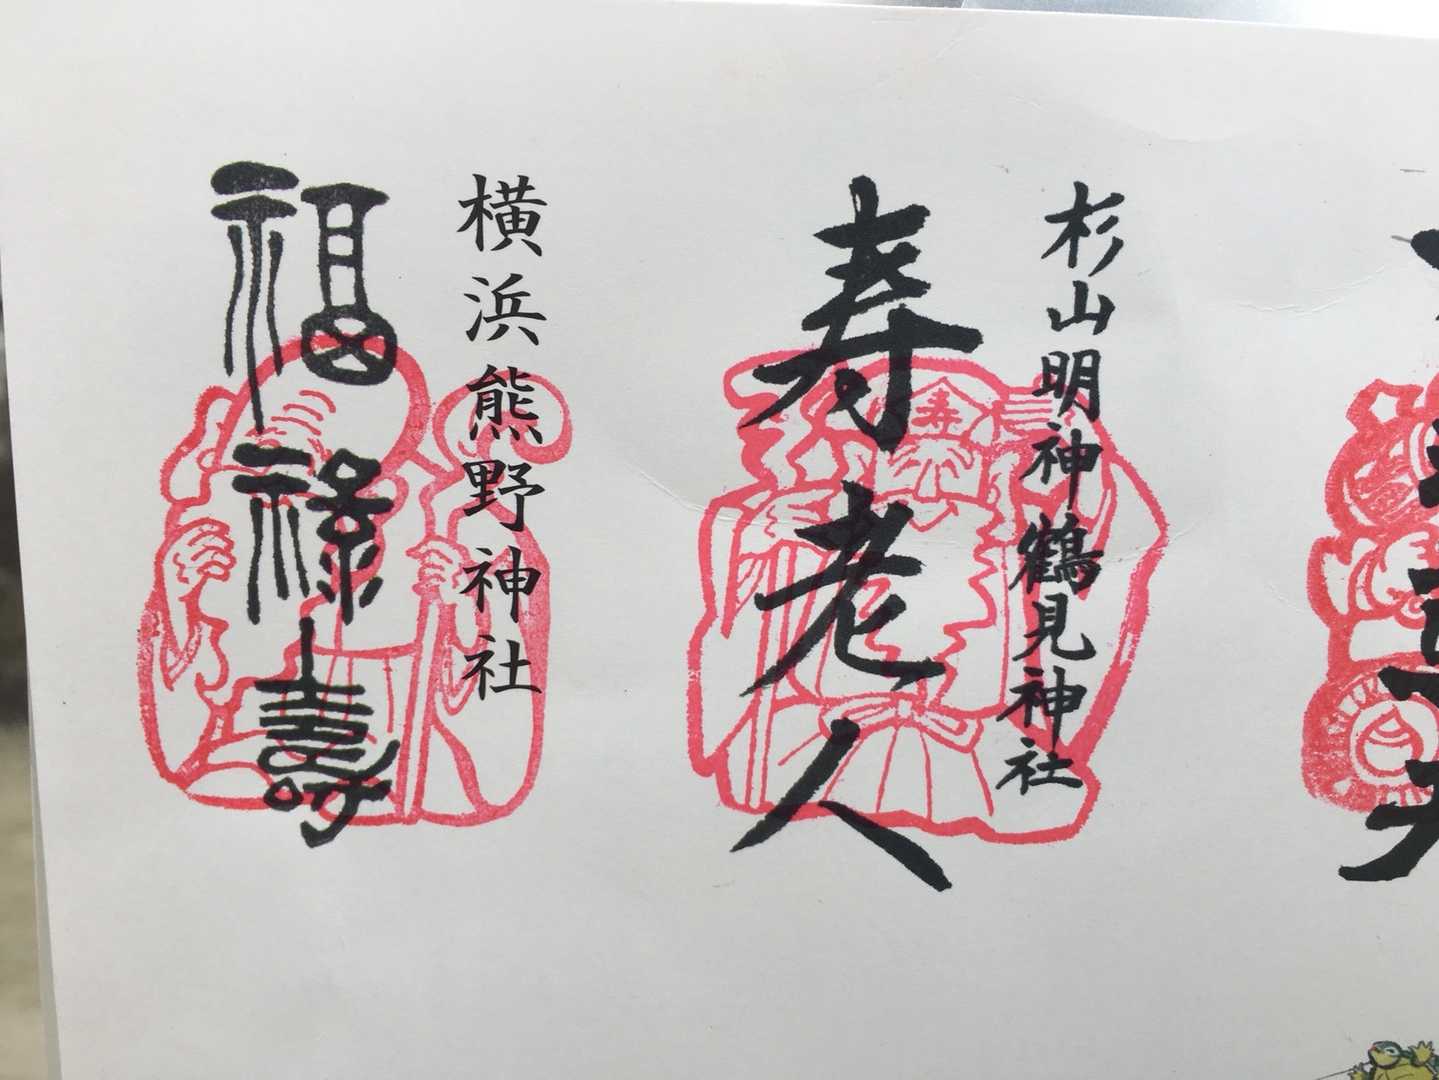 杉山明神鶴見神社
寿老人
寿
横浜熊野神社
福禄壽